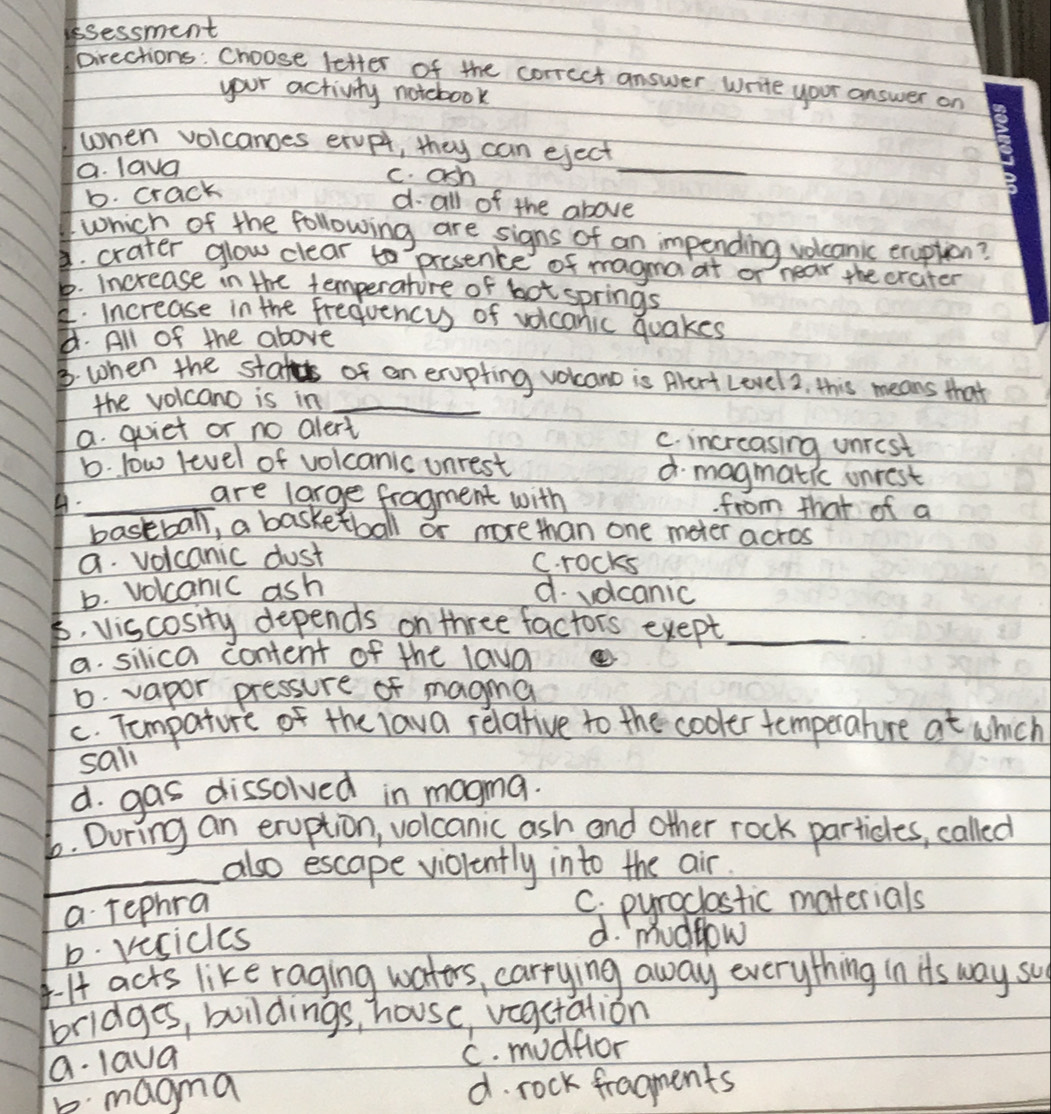 ssessment
Directions: Choose letter of the correct answer. Write your answer on
your activity notebook
. When volcanoes erupt, they can eject ________
a. lava
c. ash
b. crack
d. all of the above
. Which of the following are signs of an impending volcanic eruption?
a. crater glow clear to presence of magma at or near the crater
b. Increase in the temperature of hot springs
c. Increase in the frequency of volcanic quakes
d. All of the above
3. When the status of an erupting volcano is Alert Level 2, this means that
the volcano is in ________
a. quiet or no alert
c. increasing unrest
b. low level of volcanic unrest
d. magmatic unrest
4. ________ are large fragment with .from that of a
baseball, a basketball or more than one meter acros
a. volcanic dust
c. rocks
b. volcanic ash
d. volcanic
5. Viscosity depends on three factors exept ________.
a. silica content of the lava
b. vapor pressure of magma
c. Tempature of the lava relative to the cooler temperature at which
sali
d. gas dissolved in magma.
6. During an eruption, volcanic ash and other rock particles, called
________ also escape violently into the air.
a. Tephra
c. pyroclastic materials
b. vesicles
d. mudflow
7. It acts like raging waters, carrying away everything in its way su
bridges, buildings, house, vegetation
a. lava
c. mudflor
b. magma
d. rock fragments
80 LEAVES